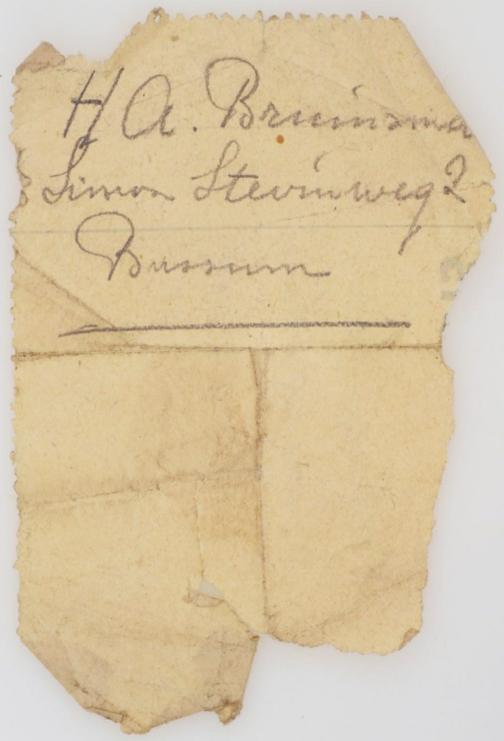 H A. Bruinsma
Simon Stevinweg 2
Bussum